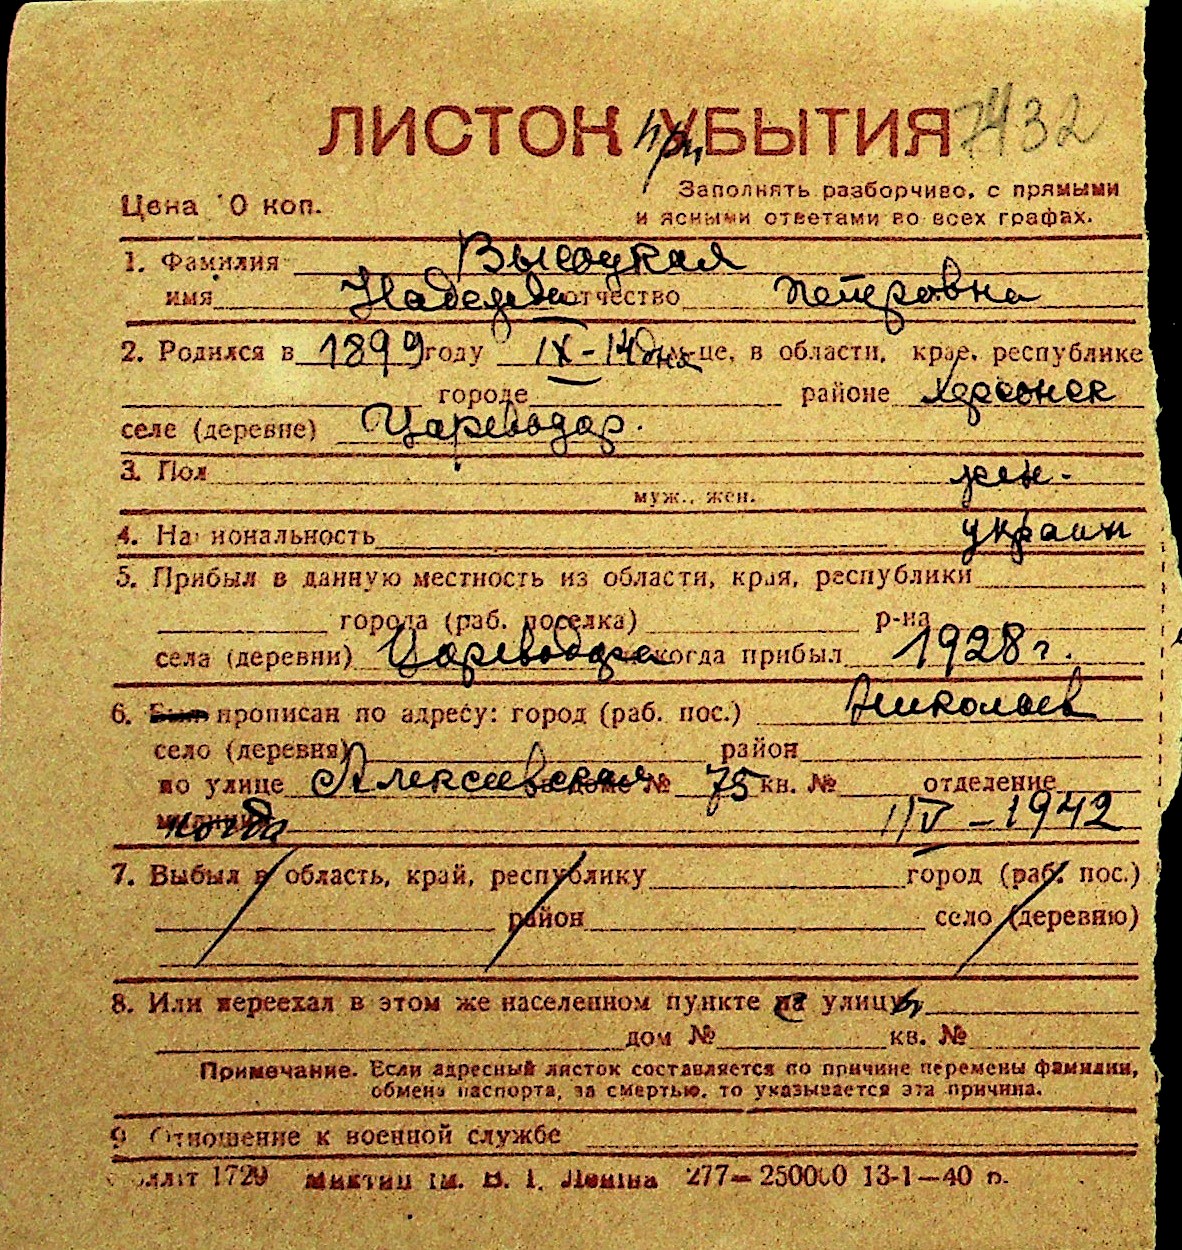 ЛИСТОК при УБЫТИЯ 7432
Цена 10 коп.
Заполнять разборчиво, с прямыми
и ясными ответами во всех графах.
1. Фамилия Высоцкая
имя Надежда отчество Петровна
2. Родился в 1899 году IX-14 дня м-це, в области, крае, республике
городе районе Херсонск
селе (деревне) Цареводар.
3. Пол жен.
муж., жен.
4. Национальность украин
5. Прибыл в данную местность из области, края, республики
города (раб. поселка) р-на
села (деревни) Цареводара когда прибыл 1928 г.
6. Был прописан по адресу: город (раб. пос.) Николаев
село (деревня) район
по улице Алексеевская дом № 75 кв. № отделение
милиции когда IV-1942
7. Выбыл в область, край, республику город (раб. пос.)
район село (деревню)
8. Или переехал в этом же населенном пункте на с улицу ы
дом № кв. №
Примечание. Если адресный листок составляется по причине перемены фамилии,
обмена паспорта, за смертью, то указывается эта причина.
9. Отношение к военной службе
1729 ім. В. І. Леніна 277—250000 13-1—40 п.